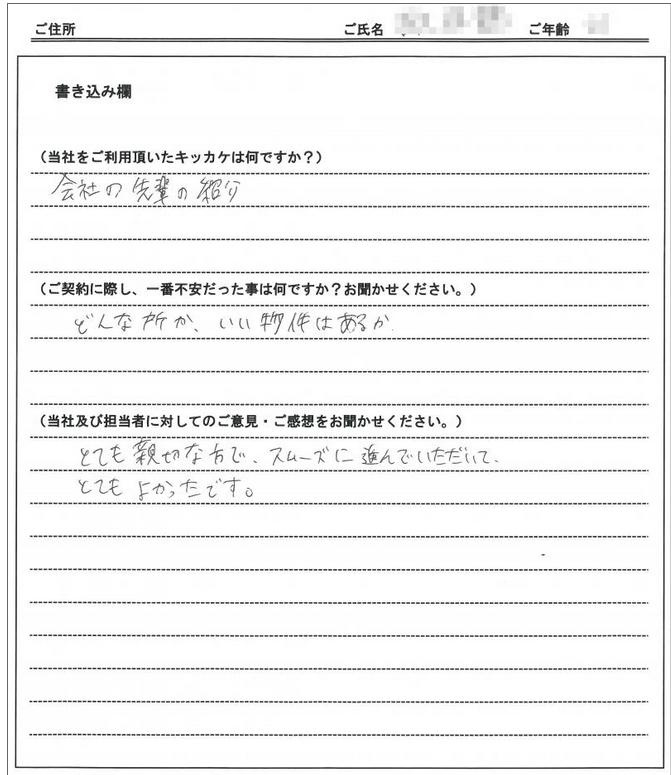 ご住所 ご氏名 ご年齢
書き込み欄
（当社をご利用頂いたキッカケは何ですか？）
会社の先輩の紹介
（ご契約に際し、一番不安だった事は何ですか？お聞かせください。）
どんな所か、いい物件はあるか.
（当社及び担当者に対してのご意見・ご感想をお聞かせください。）
とても親切な方で、スムーズに進んでいただいて、
とてもよかったです。